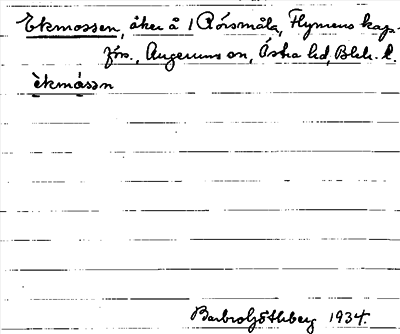 Ekmossen, åker å 1 Rörsmåla, Flymens kap-
förs., Augerums sn, Östra hd, Blek. l.
èkmósən
Barbro Götlberg 1934.